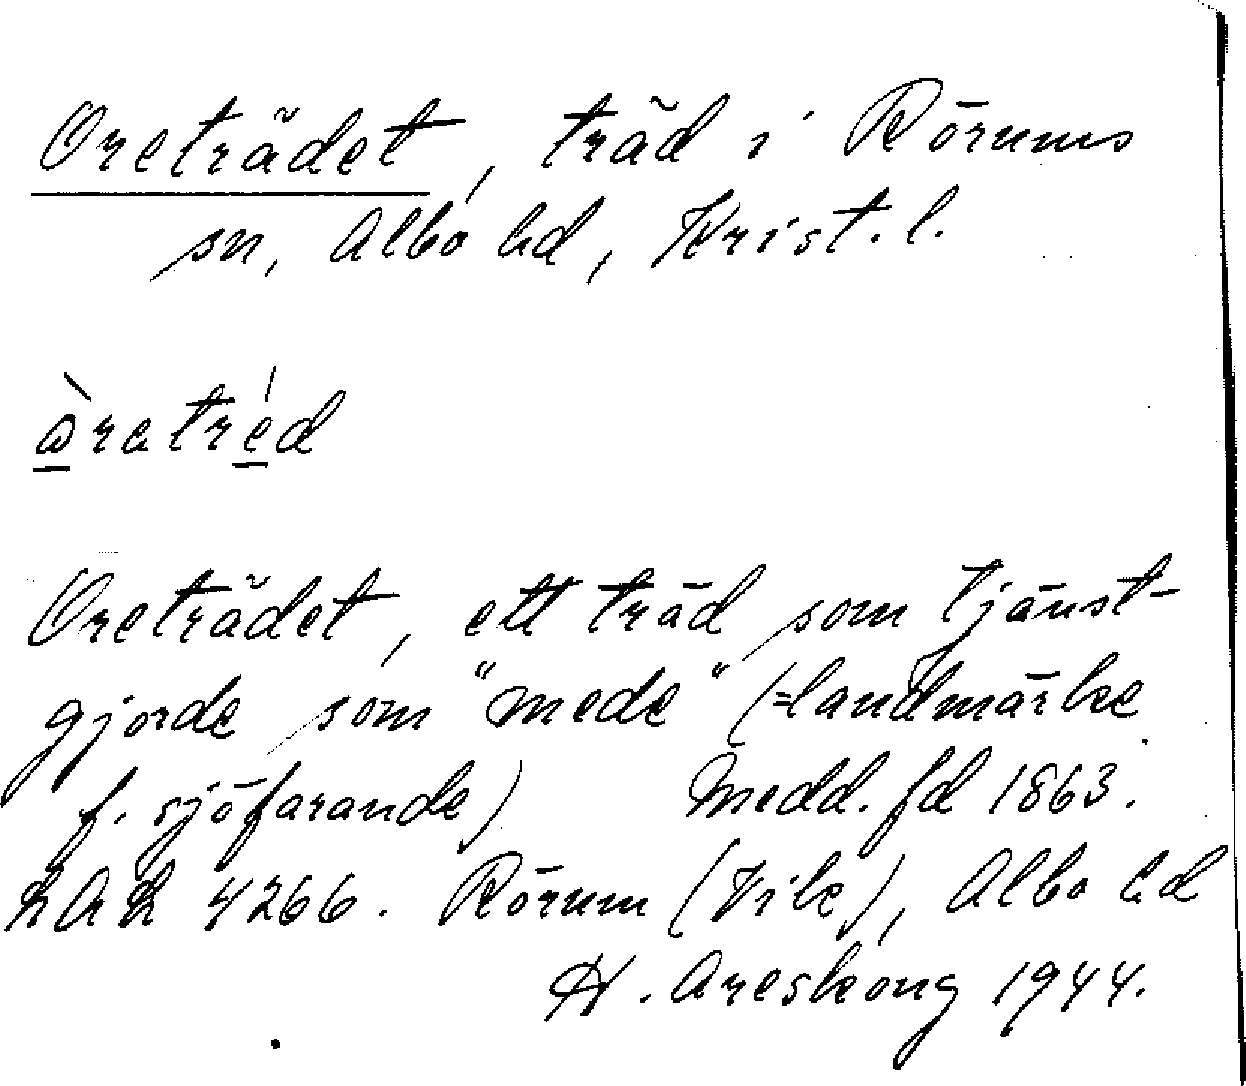 Oreträdet, träd i Rörums
sn, Albo hd, Krist. l.
òratréd
Oreträdet, ett träd som tjänst-
gjorde som "mede" (=landmärke
f. sjöfarande) Medd. fd 1863.
LAL 4266. Rörum (Vik), Albo hd
H. Areskoug 1944.